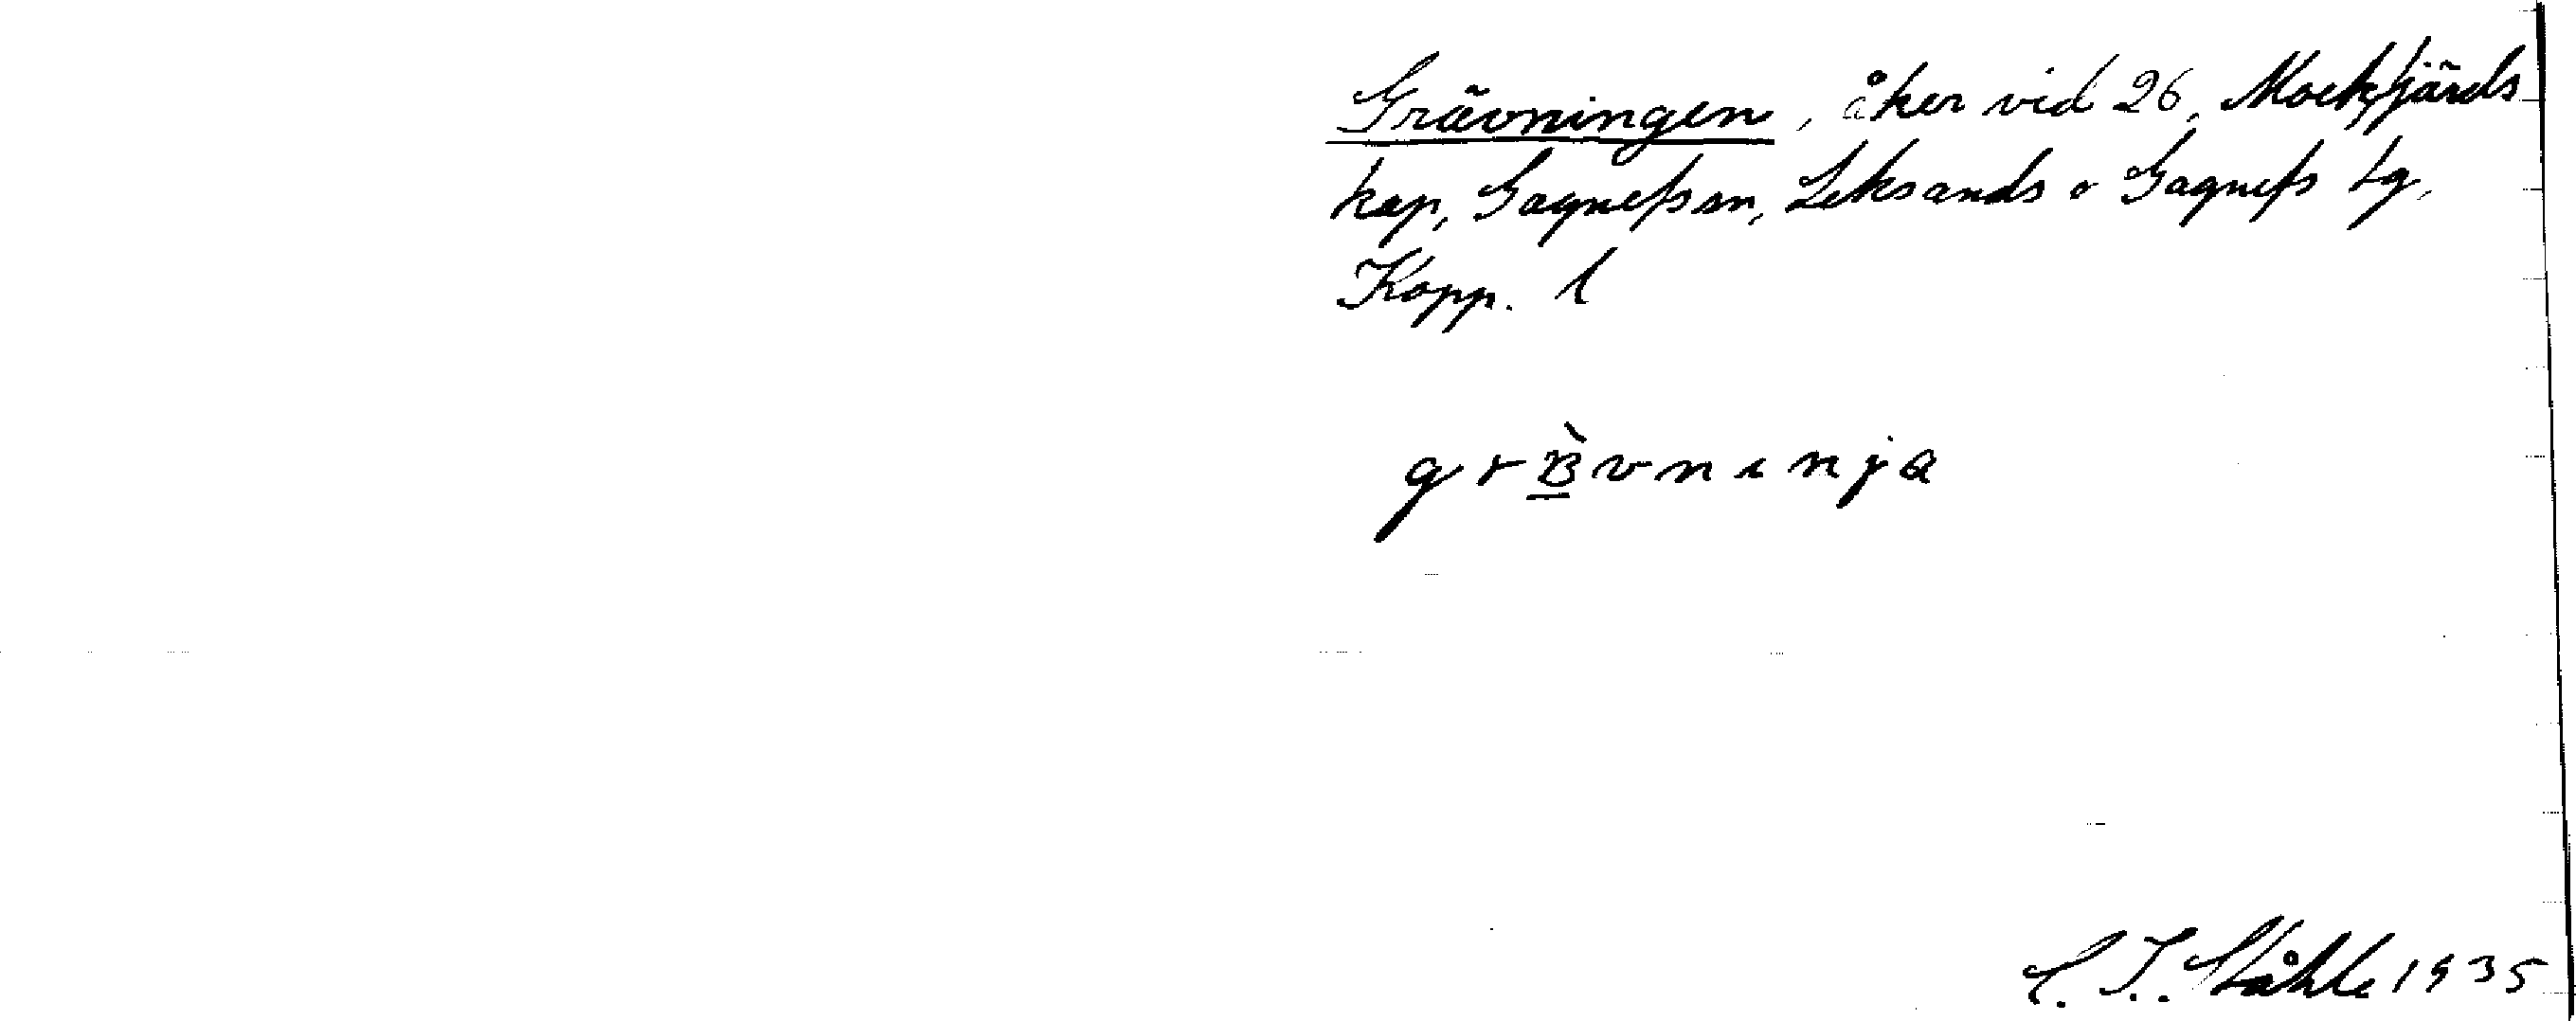 Grävningen, åker vid 26, Mockfjärds
kap, Gagnefs sn, Leksands o Gagnefs tg,
Kopp. l
C. I. Ståhle 1935